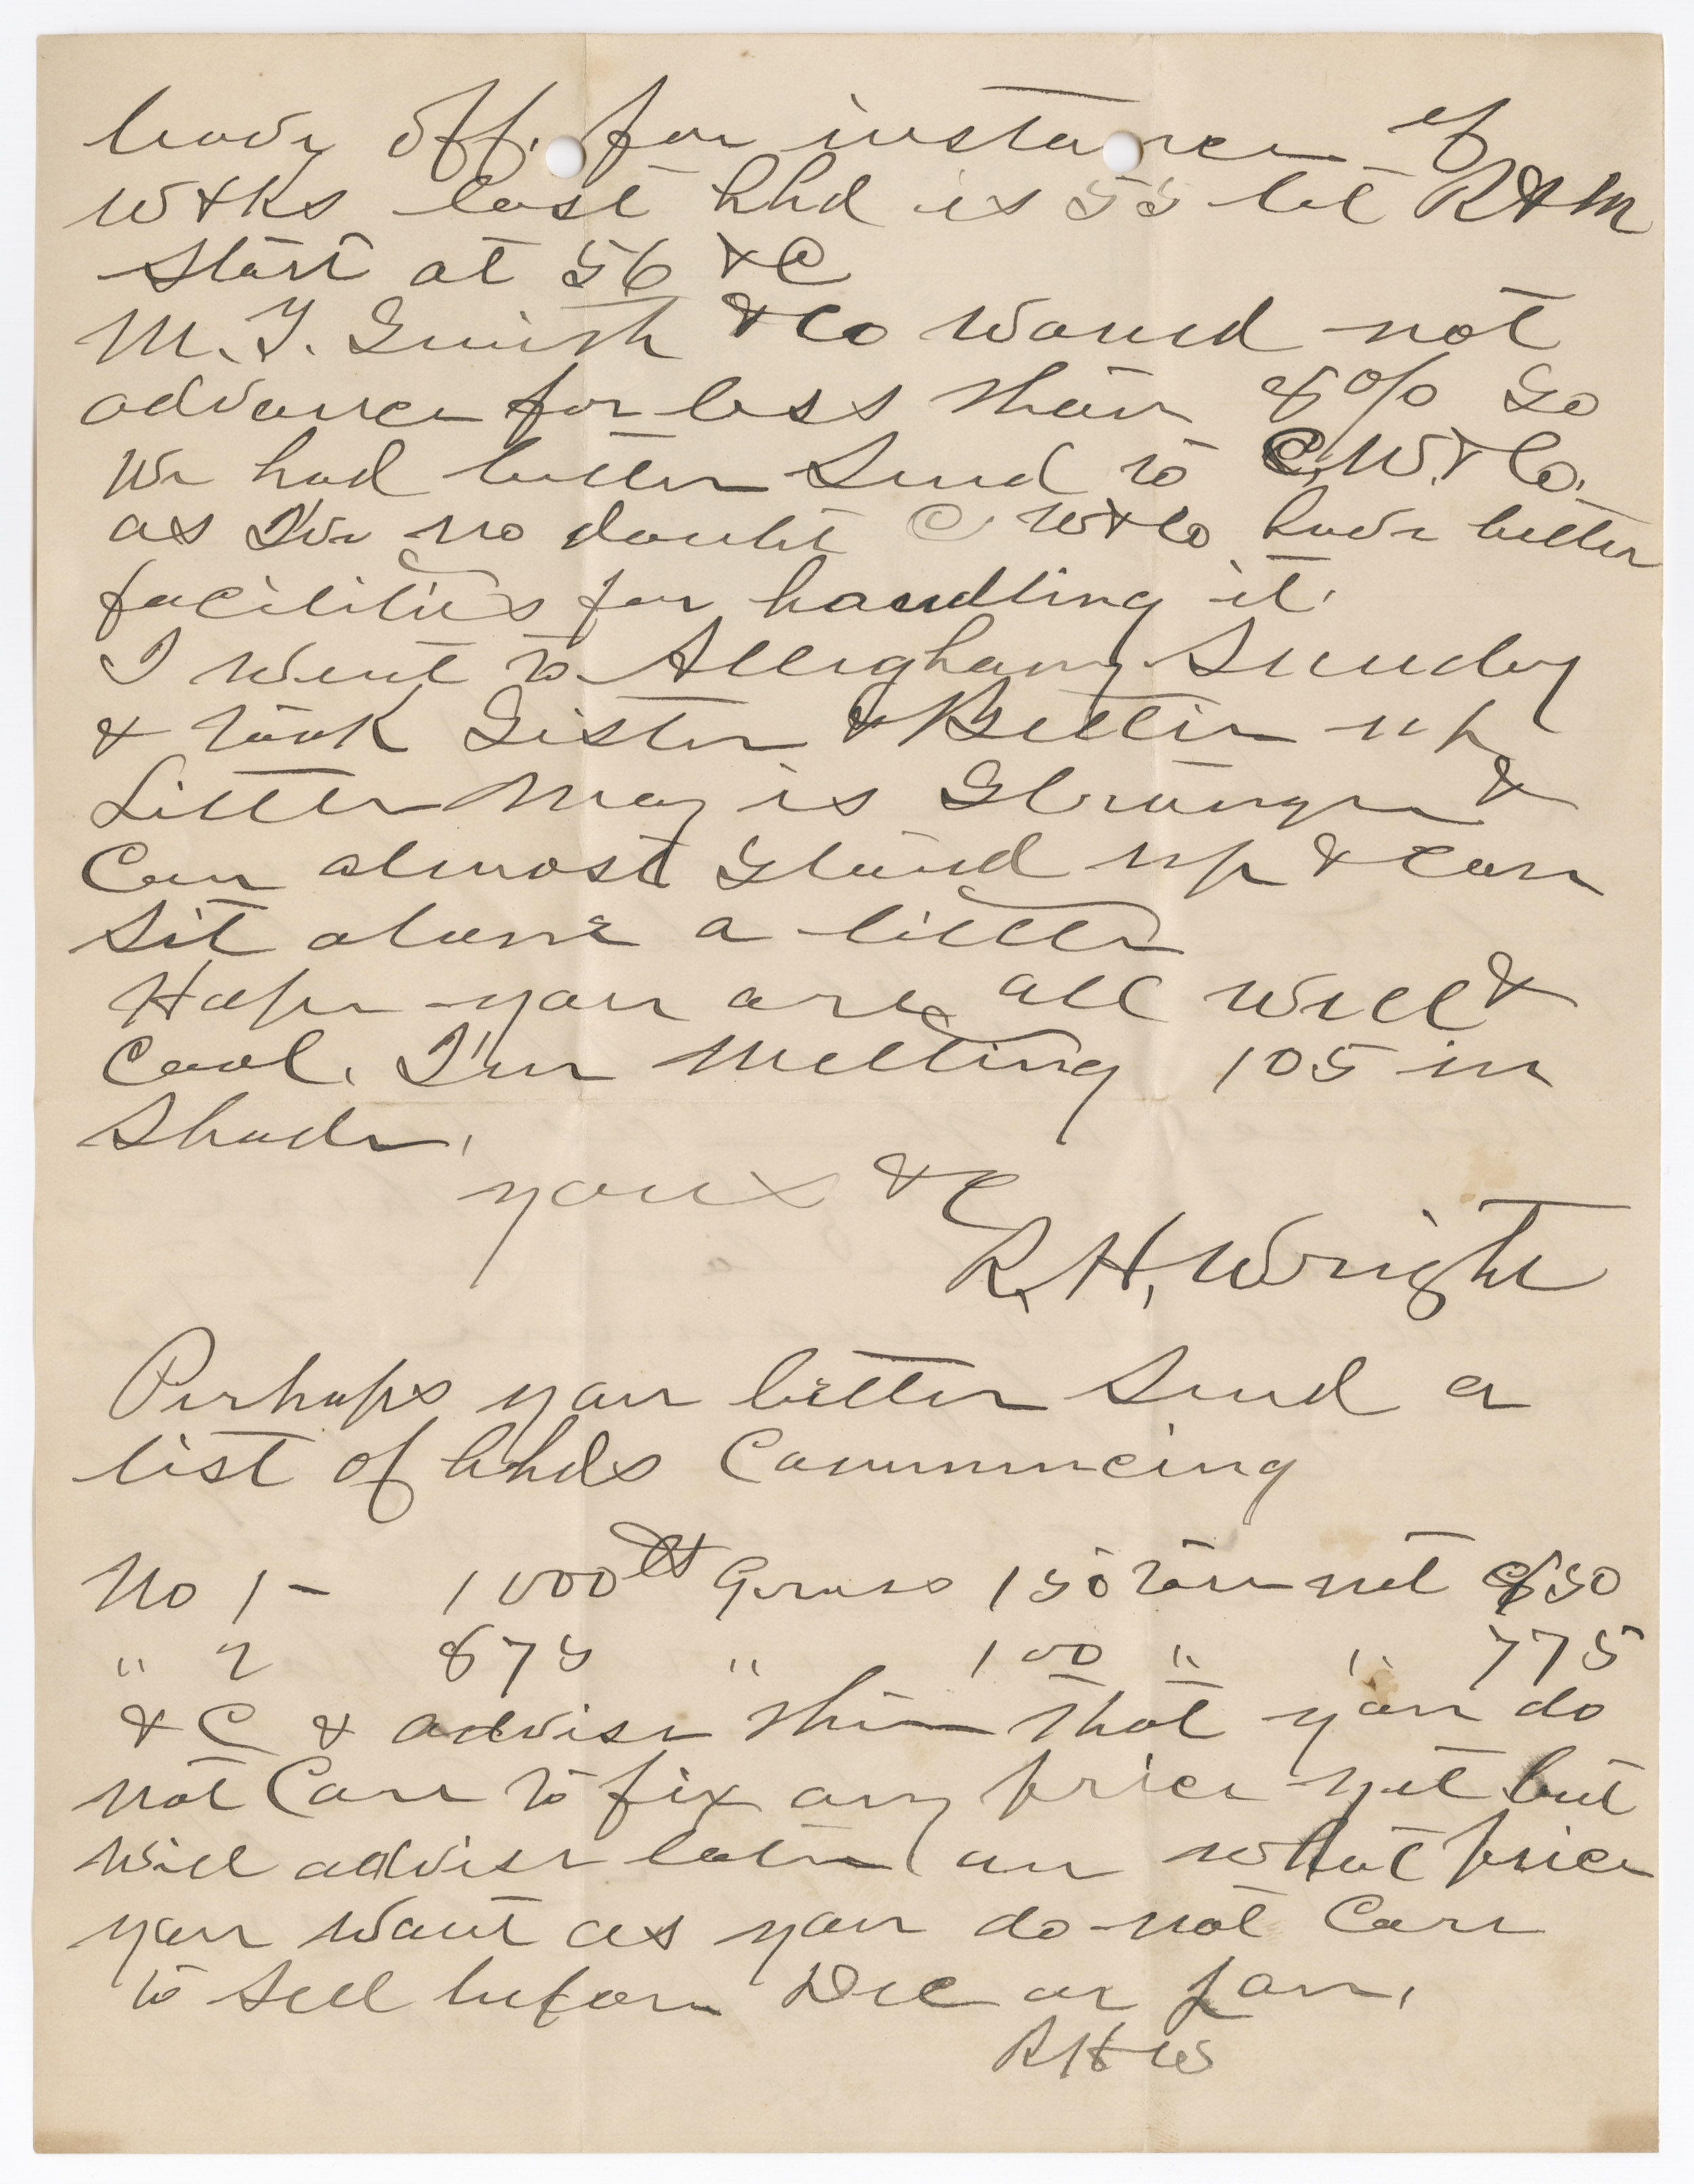 leave off. for instance if
W&Ks last hhd is 55 let R&M
start at 56 &C
M. Y. Smith & Co would not
advance for less than 8% so
We had better send to C. W. & Co.
as I've no doubt C W & Co have better
facilities for handling it.
I went to Alleghany Sunday
& took Sister & Bettie up
Little May is stronger &
Can almost stand up & can
sit alone a little
Hope you are all well &
Cool. I'm melting 105 in
shade.
yours &C
R. H. Wright
Perhaps you better send a
list of hhds Commencing
No 1 - 1000 lbs Gross 150 tare net 850
" 2 875 " 100 " " 775
& C & advise them that you do
not Care to fix any price yet but
will advise later on what price
you want as you do not Care
to sell before Dec or Jan.
RHW